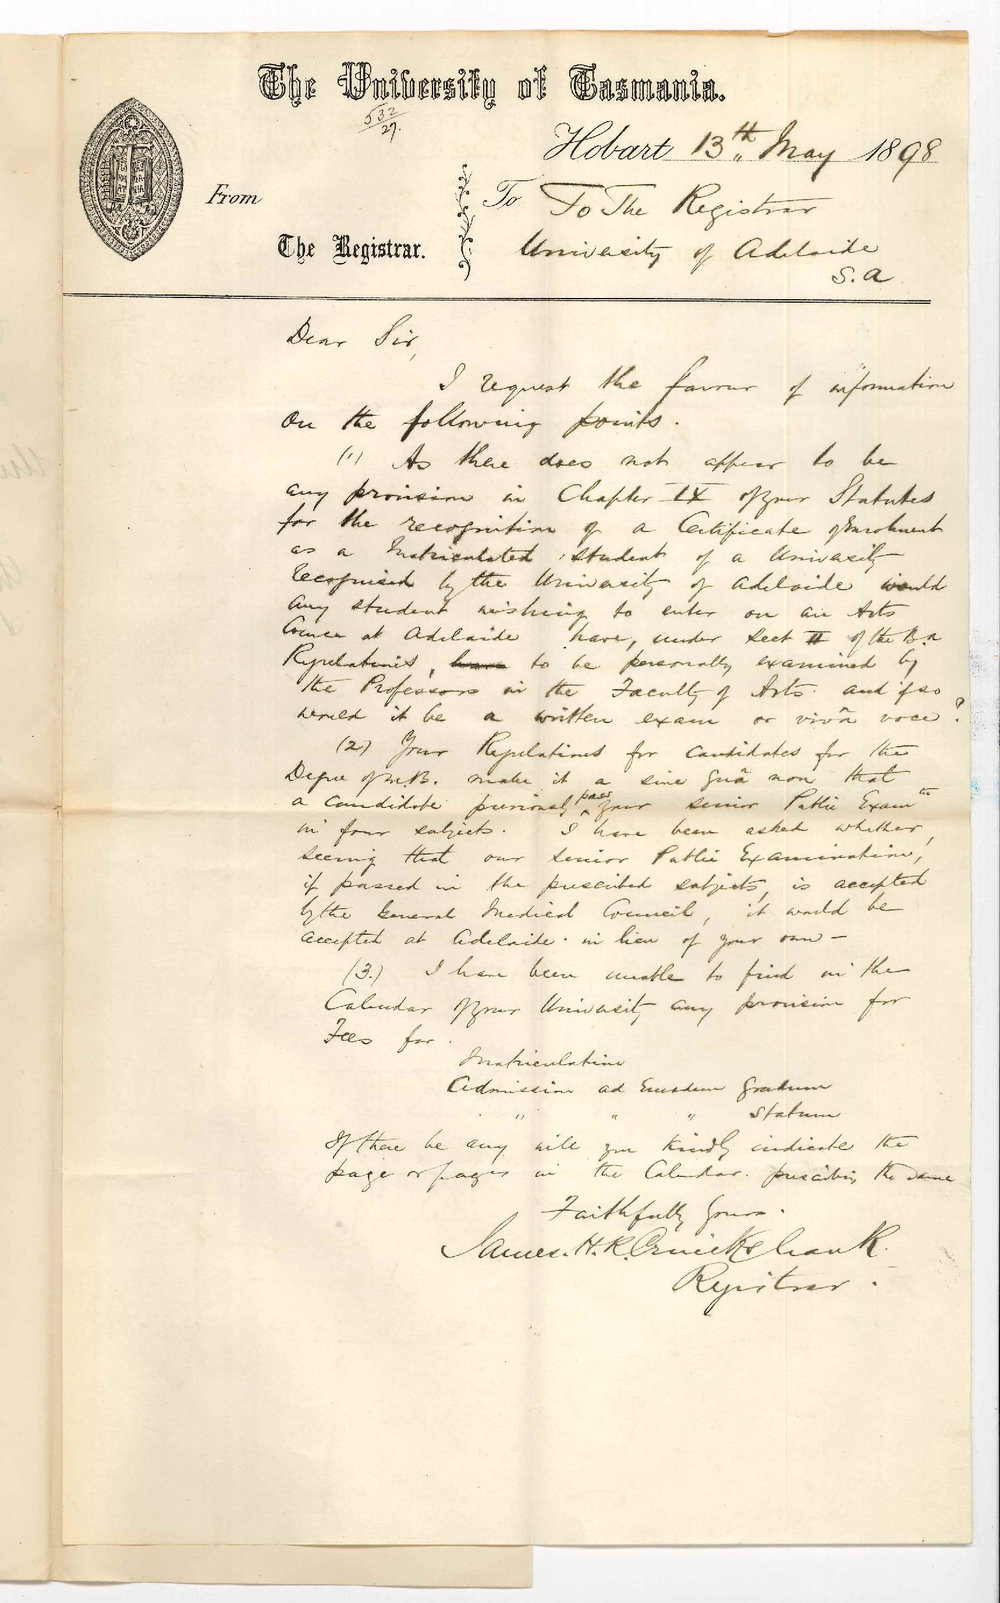 The University of Tasmania.
532/29.
Hobart 13th May 1898
From
The Registrar.
To To The Registrar
University of Adelaide
S.A
Dear Sir,
I request the favour of information
on the following points.
(1) As there does not appear to be
any provision in Chapter IX of your Statutes
for the recognition of a Certificate of Enrolment
as a Matriculated student of a University
recognised by the University of Adelaide would
any student wishing to enter on an Arts
Course at Adelaide have, under Sect II of the B.A
Regulations, have to be personally examined by
the Professors in the Faculty of Arts. and if so
would it be a written exam or vivâ voce?
(2) Your Regulations for candidates for the
Degree of M.B. make it a sine quâ non that
a candidate previously pass your Senior Public Examtn
in four subjects. I have been asked whether,
seeing that our Senior Public Examination,
if passed in the prescribed subjects, is accepted
by the General Medical Council, it would be
accepted at Adelaide in lieu of your own —
(3.) I have been unable to find in the
Calendar of your University any provision for
Fees for
Matriculation
Admission ad Eundem Gradum
" " " Statum
If there be any will you kindly indicate the
page or pages in the Calendar prescribing the same
Faithfully Yours.
James. H. R. Cruickshank.
Registrar.